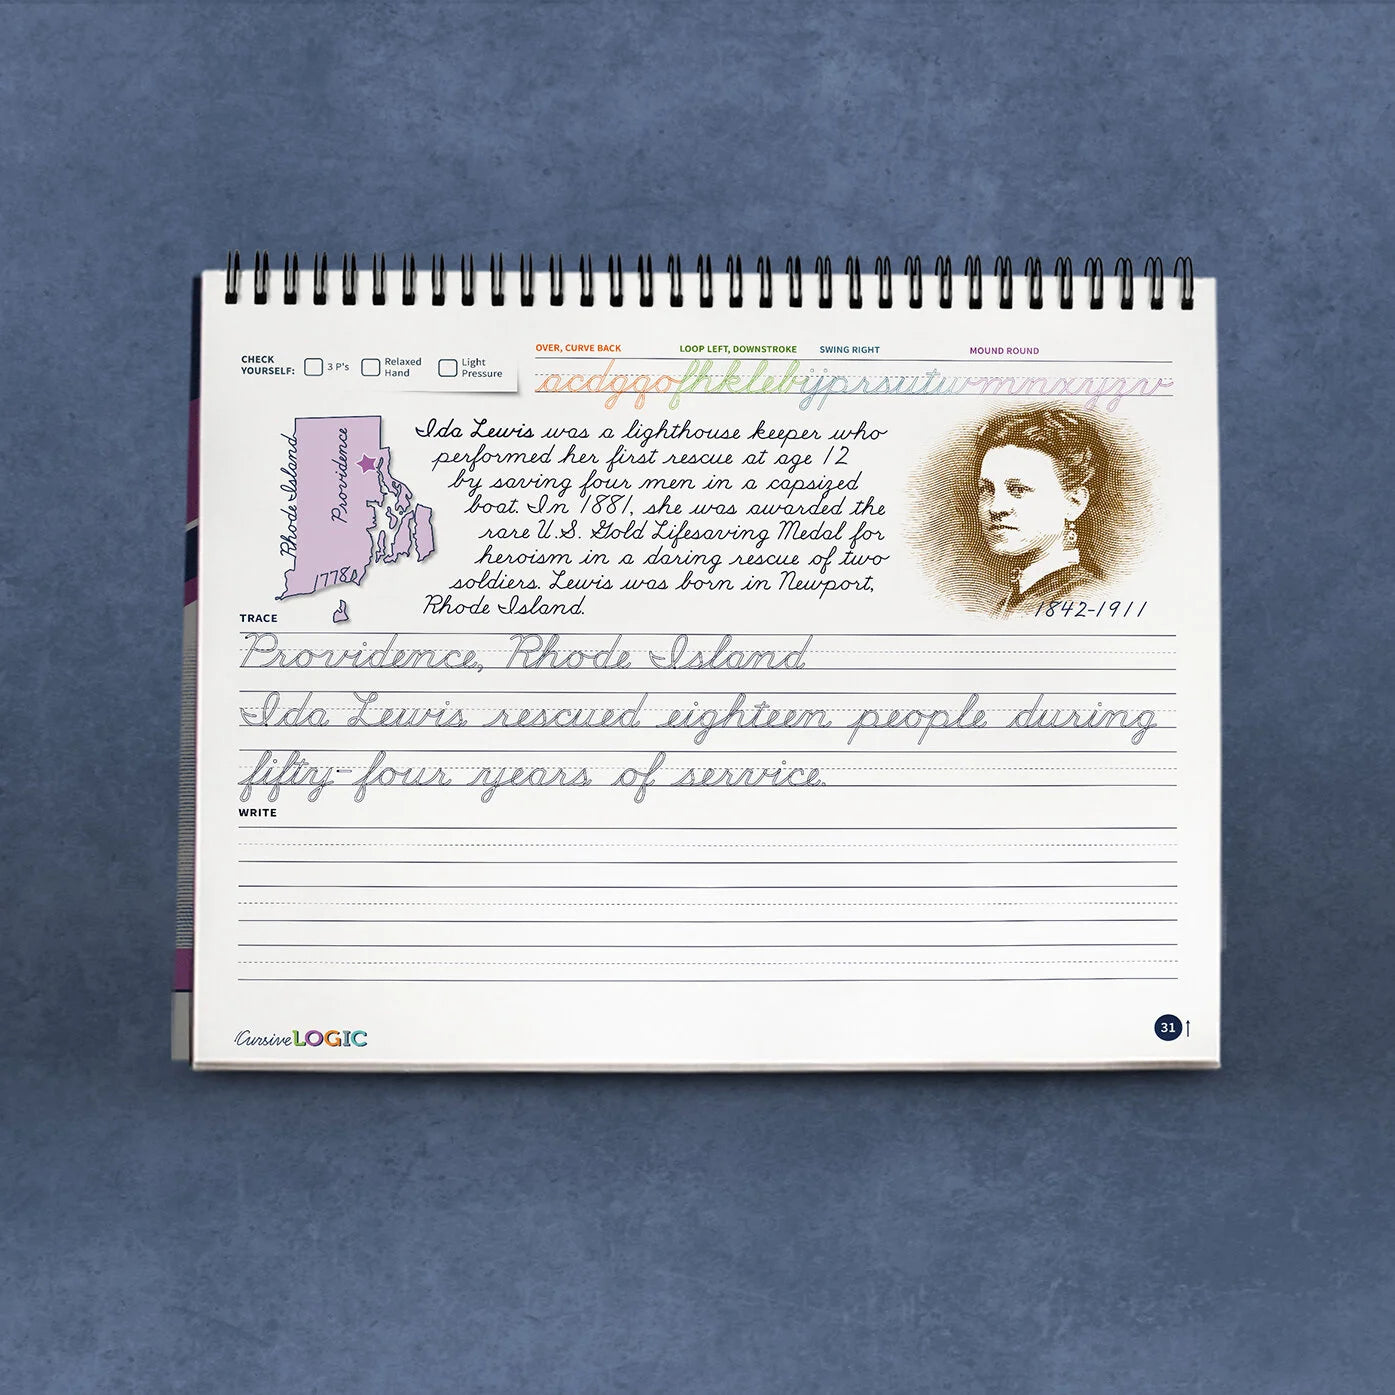 CHECK YOURSELF: 3 P's Relaxed Hand Light Pressure
OVER, CURVE BACK LOOP LEFT, DOWNSTROKE SWING RIGHT MOUND ROUND
acdgqofhklebijprsutuwmnxyzv
Rhode Island
Providence
1778
Ida Lewis was a lighthouse keeper who
performed her first rescue at age 12
by saving four men in a capsized
boat. In 1881, she was awarded the
rare U.S. Gold Lifesaving Medal for
heroism in a daring rescue of two
soldiers. Lewis was born in Newport,
Rhode Island.
1842-1911
TRACE
Providence, Rhode Island
Ida Lewis rescued eighteen people during
fifty-four years of service.
WRITE
CursiveLOGIC
31